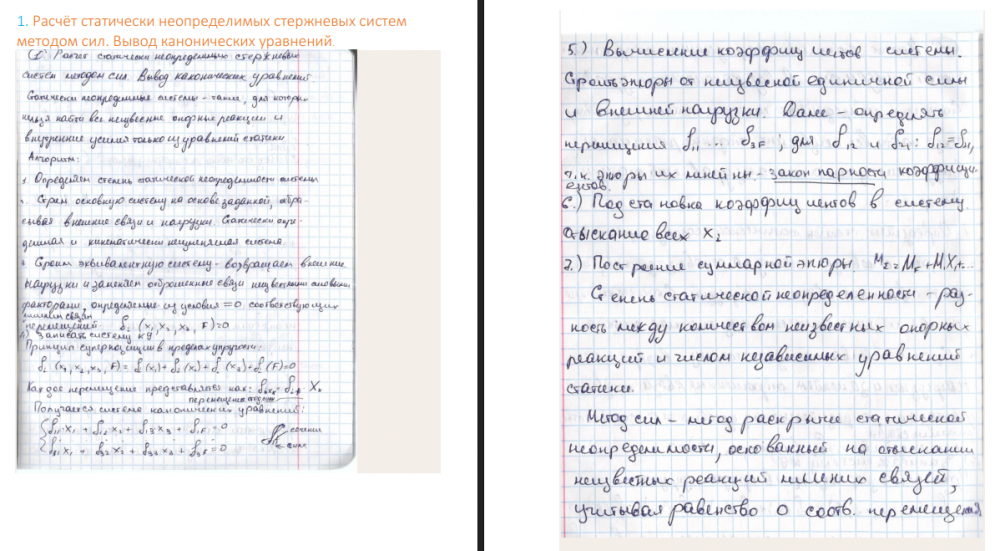 1. Расчёт статически неопределимых стержневых систем
методом сил. Вывод канонических уравнений.
① Расчет статически неопределимых стержневых
систем методом сил. Вывод канонических уравнений
Статически неопределимые системы - такие, для которых
нельзя найти все неизвестные опорные реакции и
внутренние усилия только из уравнений статики
Алгоритм:
1. Определяем степень статической неопределимости системы
Строим основную систему на основе заданной, отбра-
сывая внешние связи и нагрузки. Статически опре-
делимая и кинематически неизменяемая система.
Строим эквивалентную систему - возвращаем внешние
нагрузки и заменяем отброшенные связи неизвестными силовыми
факторами, определяемые из условия = 0 соответствующих
лишним связям
перемещений δi (x1, x2, x3, F) = 0
4) Записать систему КУ
Принцип суперпозиции в пределах упругости:
δi (x1, x2, x3, F) = δi (x1) + δi (x2) + δi (x3) + δi (F) = 0
Каждое перемещение представляется как:
перемещение
Получается система канонических уравнений:
δ11 x1 + δ12 x2 + δ13 x3 + δ1F = 0
δ31 x1 + δ32 x2 + δ33 x3 + δ3F = 0
сечение
сила
5.) Вычисление коэффициентов системы.
Строить эпюры от неизвестной единичной силы
и внешней нагрузки. Далее - определять
перемещения δ11 ... δ3F; для δ12 и δ21: δ12 = δ21,
т.к. эпюры их линейны - закон парности коэффици-
ентов.
6.) Подстановка коэффициентов в систему.
Отыскание всех xi
7.) Построение суммарной эпюры. MΣ = MF + M1X1+...
Степень статической неопределенности - раз-
ность между количеством неизвестных опорных
реакций и числом независимых уравнений
статики.
Метод сил - метод раскрытие статической
неопределимости, основанный на отыскании
неизвестных реакций лишних связей,
учитывая равенство 0 соотв. перемещений